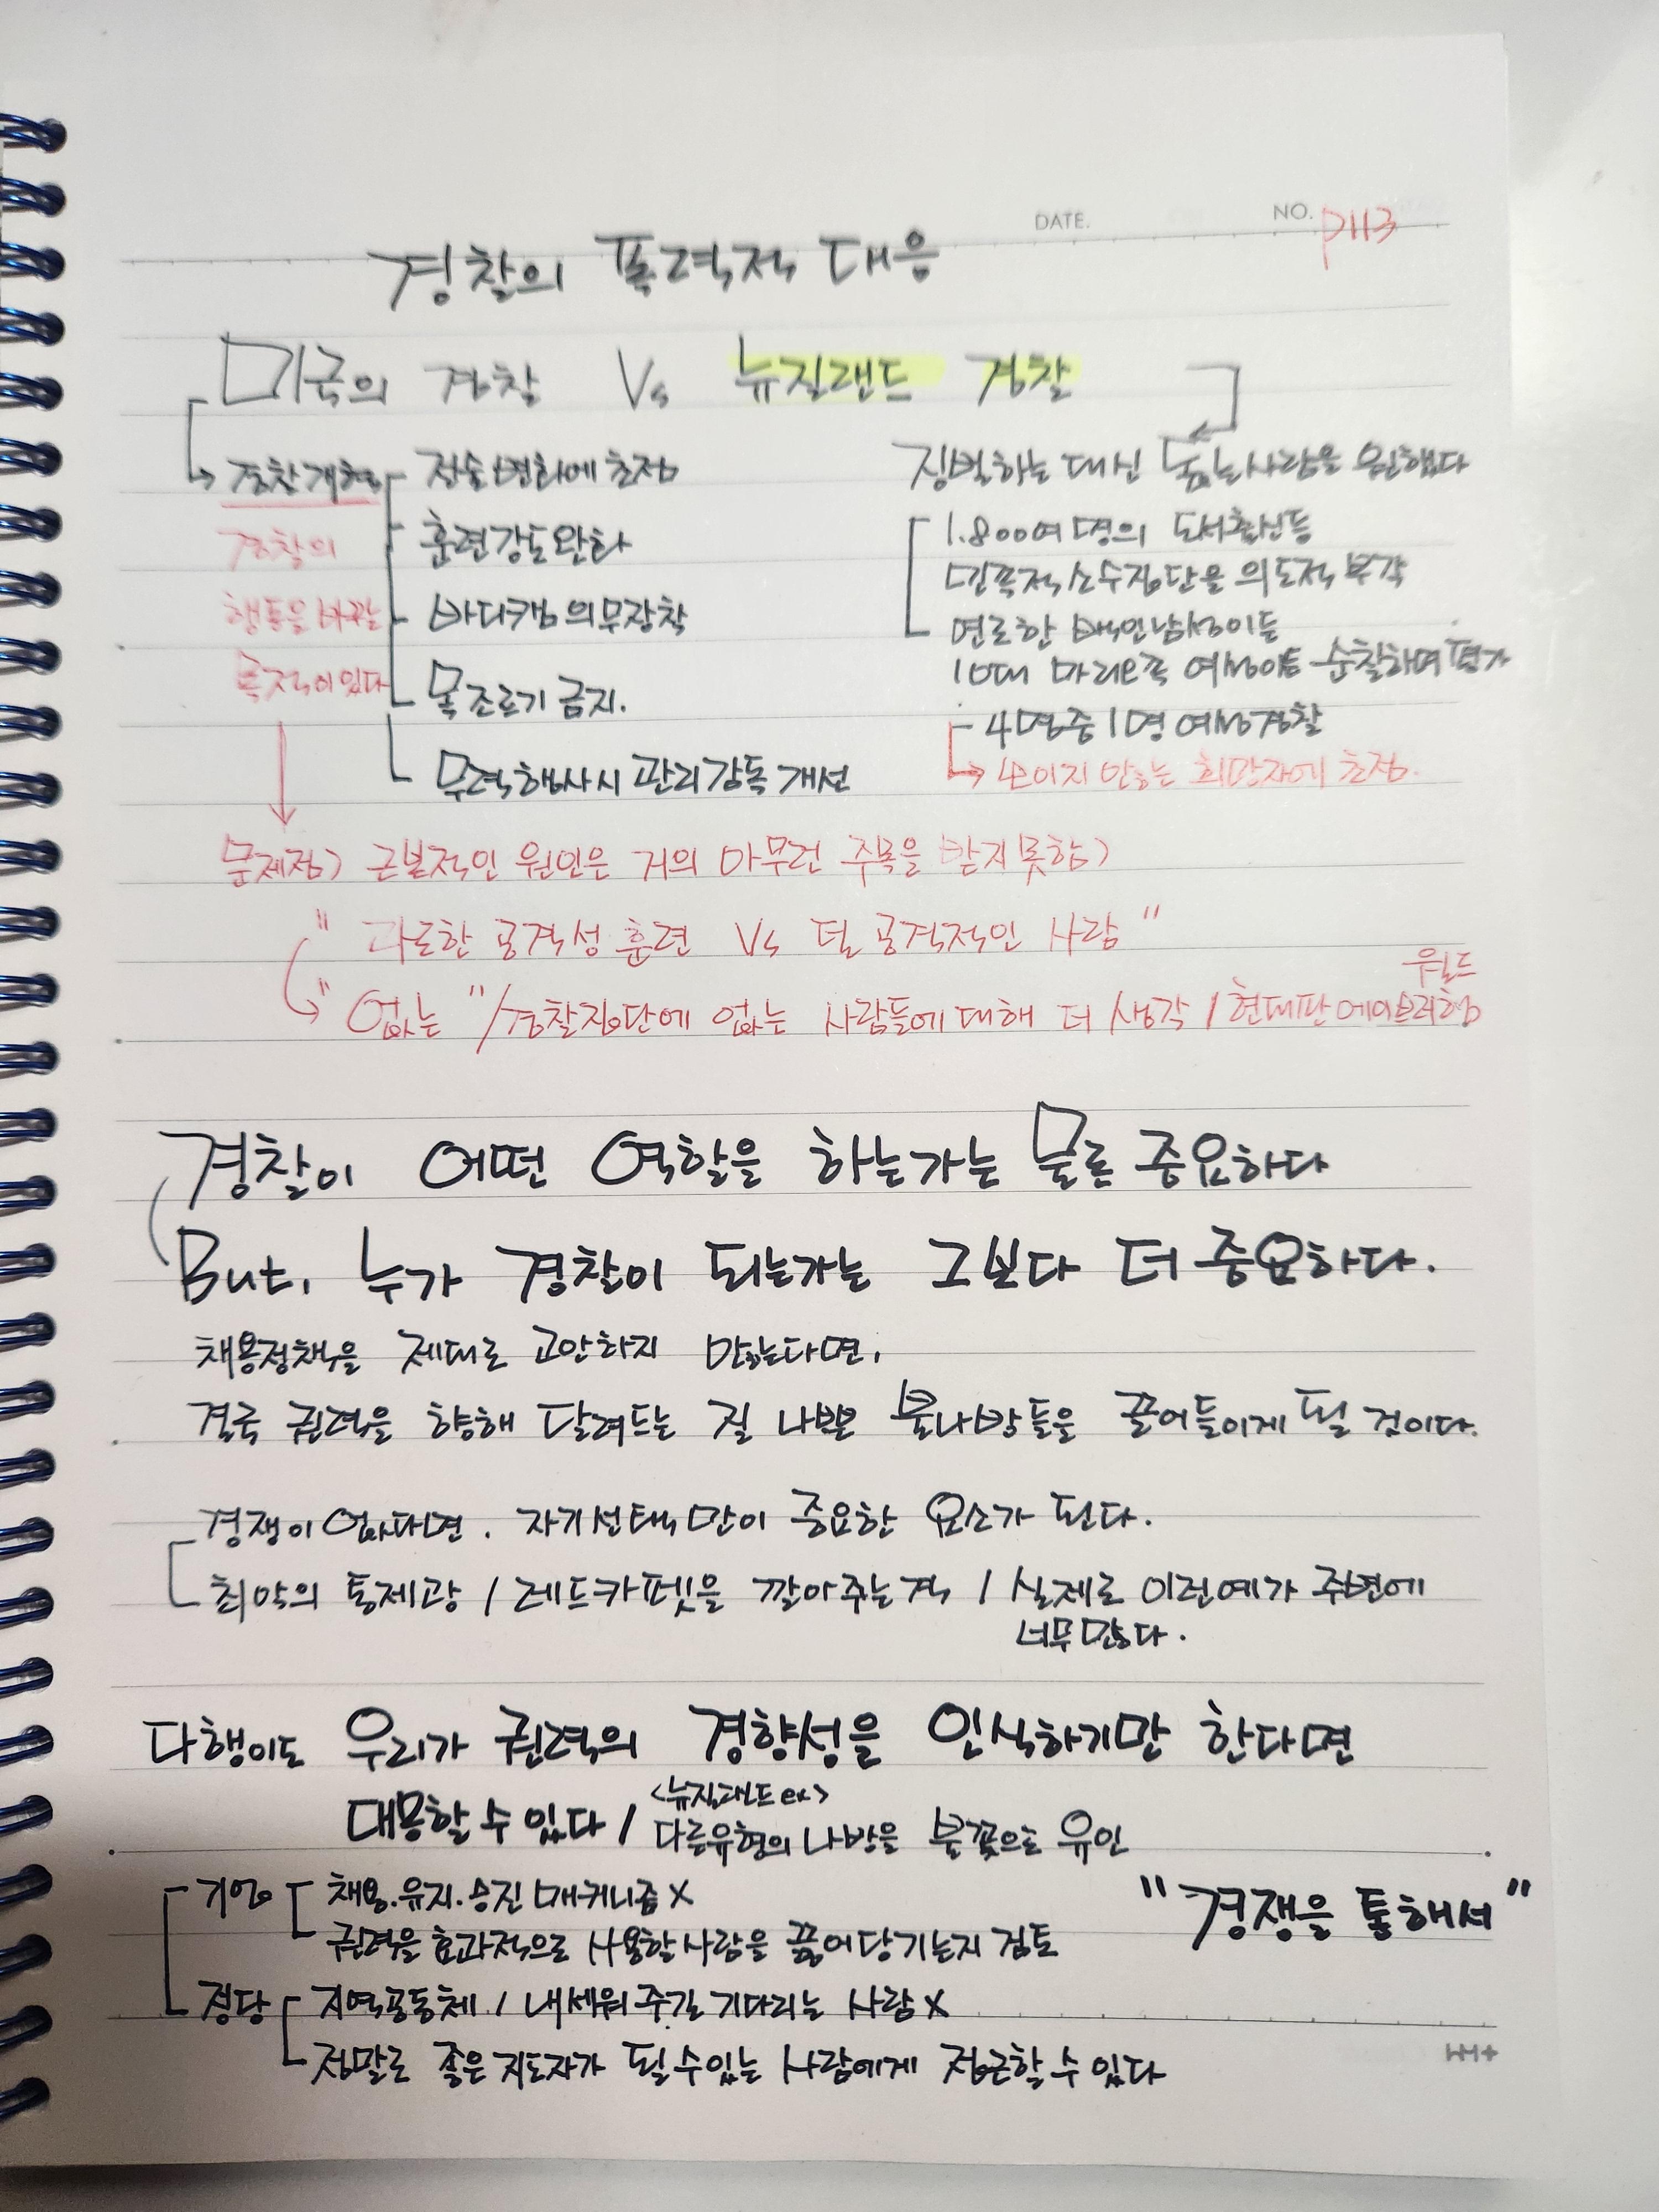 DATE.
NO. P113
경찰의 폭력적 대응
미국의 경찰 Vs 뉴질랜드 경찰
경찰개혁
전술변화에 초점
훈련강도완화
바디캠 의무장착
목조르기 금지.
무력행사시 관리감독 개선
경찰의
행동을 바꿀
목적이 있다
징벌하는 대신 돕는사람을 원했다
1.800여명의 도서출신등
민족적소수집단을 의도적 부각
연로한 백인남성이든
10대 마리오쪽 여성이든 순찰하며 평가
4명중 1명 여성경찰
보이지 않는 희망자에 초점.
문제점) 근본적인 원인은 거의 아무런 주목을 받지못함)
" 과도한 공격성 훈련 Vs 덜 공격적인 사람 "
" 없는 " / 경찰집단에 없는 사람들에 대해 더 생각 / 현대판 에이브러험
월드
경찰이 어떤 역할을 하는가는 물론 중요하다
But, 누가 경찰이 되는가는 그보다 더 중요하다.
채용정책을 제대로 고안하지 않는다면,
결국 권력을 향해 달려드는 질 나쁜 불나방들을 끌어들이게 될 것이다.
경쟁이 없다면. 자기선택만이 중요한 요소가 된다.
최악의 통제광 / 레드카펫을 깔아주는격 / 실제로 이런예가 주변에
너무많다.
다행이도 우리가 권력의 경향성을 인식하기만 한다면
<뉴질랜드 ex>
대응할 수 있다 / 다른유형의 나방을 불꽃으로 유인
기업
채용.유지.승진 매커니즘 X
권력을 효과적으로 사용할사람을 끌어당기는지 검토
" 경쟁을 통해서 "
정당
지역공동체 / 내세워 주길 기다리는 사람 X
정말로 좋은 지도자가 될 수 있는 사람에게 접근할 수 있다